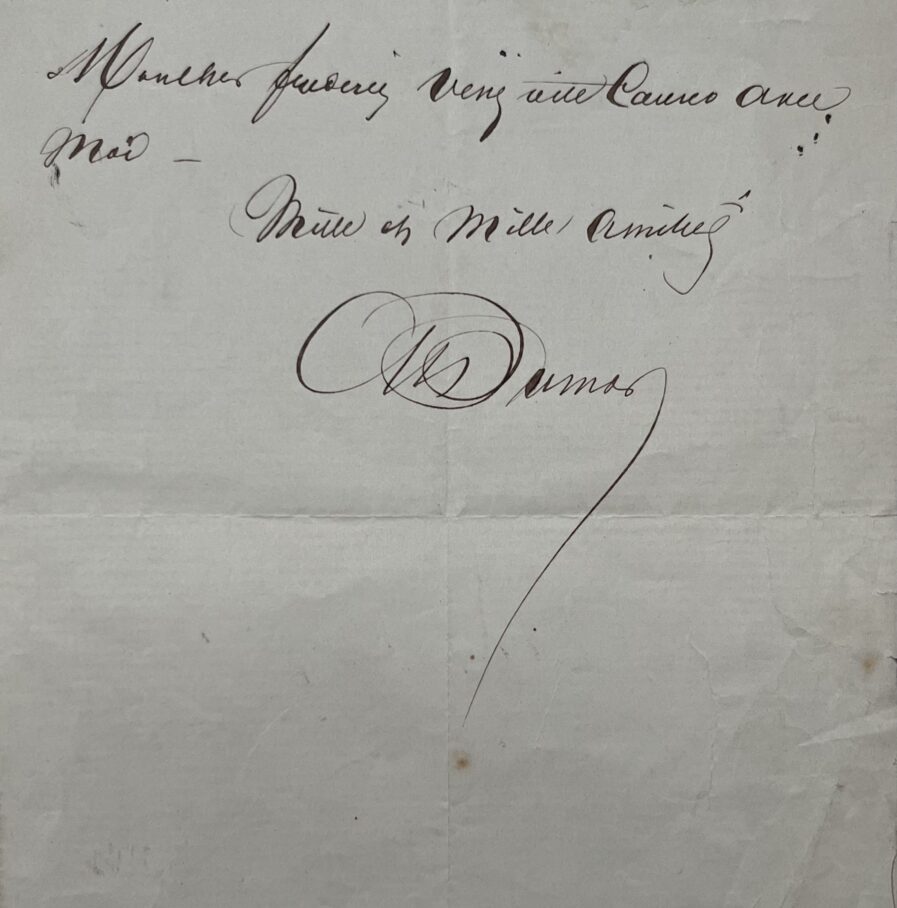 Mon cher frederic venez vite Causer avec
Moi —
Mille et Mille amitiés
Alex Dumas